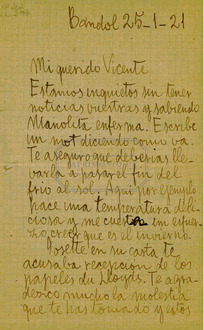 Bandol 25-1-21
Mi querido Vicente
Estamos inquietos sin tener
noticias vuestras y sabiendo
Manolita enferma. Escribe
un mot diciendo como va.
Te aseguro que deberias lle-
varla a pasar el fin del
frio al sol. Aqui por ejemplo
hace una temperatura deli-
ciosa y me cuesta un esfuer-
zo, creer que es el invierno.
Josette en su carta te
acusaba recepcion de los
papeles du Lloyds. Te agra-
dezco mucho la molestia
que te has tomado y estos